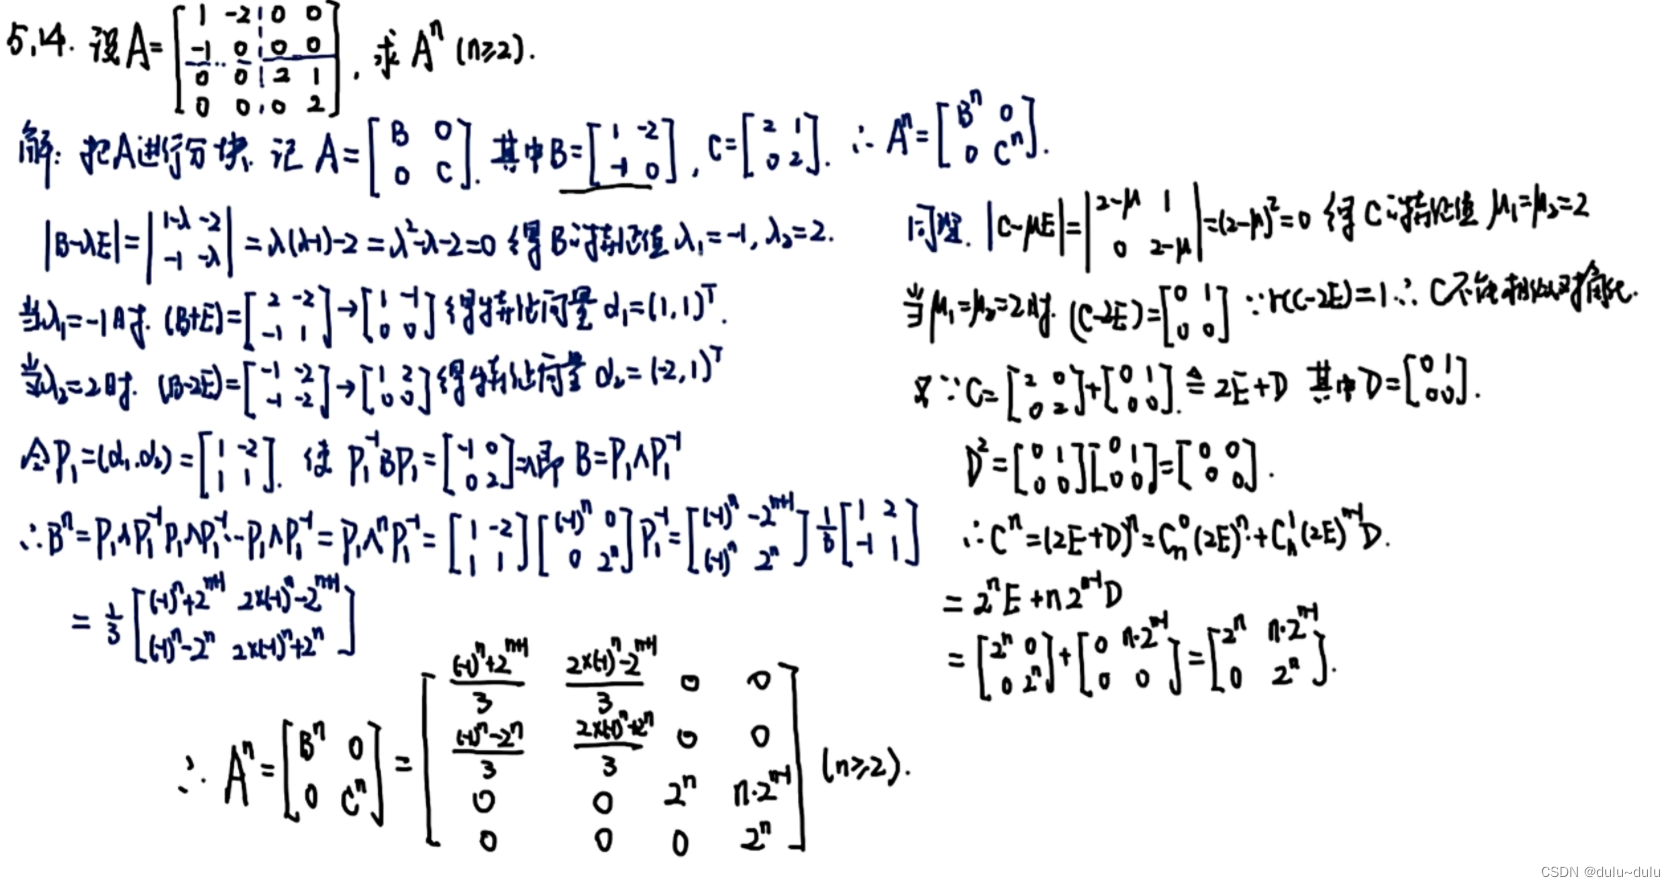 5.14. 设A=[1 -2 0 0; -1 0 0 0; 0 0 2 1; 0 0 0 2], 求 Aⁿ (n≥2).
解: 把A进行分块. 记 A=[B 0; 0 C]. 其中B=[1 -2; -1 0], C=[2 1; 0 2]. ∴ Aⁿ=[Bⁿ 0; 0 Cⁿ].
|B-λE|=|1-λ -2; -1 -λ|=λ(λ-1)-2=λ²-λ-2=0 得B的特征值λ₁=-1, λ₂=2.
当λ₁=-1时. (B+E)=[2 -2; -1 1]→[1 -1; 0 0] 得特征向量 α₁=(1,1)ᵀ.
当λ₂=2时. (B-2E)=[-1 -2; -1 -2]→[1 2; 0 0] 得特征向量 α₂=(-2,1)ᵀ
令P₁=(α₁.α₂)=[1 -2; 1 1]. 使 P₁⁻¹BP₁=[-1 0; 0 2]=Λ即 B=P₁ΛP₁⁻¹
∴Bⁿ=P₁ΛP₁⁻¹P₁ΛP₁⁻¹…P₁ΛP₁⁻¹=P₁ΛⁿP₁⁻¹=[1 -2; 1 1][(-1)ⁿ 0; 0 2ⁿ]P₁⁻¹=[(-1)ⁿ -2ⁿ⁺¹; (-1)ⁿ 2ⁿ] 1/3 [1 2; -1 1]
= 1/3 [(-1)ⁿ+2ⁿ⁺¹ 2×(-1)ⁿ-2ⁿ⁺¹; (-1)ⁿ-2ⁿ 2×(-1)ⁿ+2ⁿ]
同理. |C-μE|=|2-μ 1; 0 2-μ|=(2-μ)²=0 得C的特征值 μ₁=μ₂=2
当μ₁=μ₂=2时. (C-2E)=[0 1; 0 0] ∵r(C-2E)=1 ∴ C不能相似对角化.
又∵C=[2 0; 0 2]+[0 1; 0 0] ≜ 2E+D 其中D=[0 1; 0 0].
D²=[0 1; 0 0][0 1; 0 0]=[0 0; 0 0].
∴Cⁿ=(2E+D)ⁿ=Cₙ⁰(2E)ⁿ+Cₙ¹(2E)ⁿ⁻¹D.
= 2ⁿE+n2ⁿ⁻¹D
=[2ⁿ 0; 0 2ⁿ]+[0 n·2ⁿ⁻¹; 0 0]=[2ⁿ n·2ⁿ⁻¹; 0 2ⁿ].
∴ Aⁿ=[Bⁿ 0; 0 Cⁿ]=[((-1)ⁿ+2ⁿ⁺¹)/3 (2×(-1)ⁿ-2ⁿ⁺¹)/3 0 0; ((-1)ⁿ-2ⁿ)/3 (2×(-1)ⁿ+2ⁿ)/3 0 0; 0 0 2ⁿ n·2ⁿ⁻¹; 0 0 0 2ⁿ] (n≥2).
CSDN @dulu~dulu